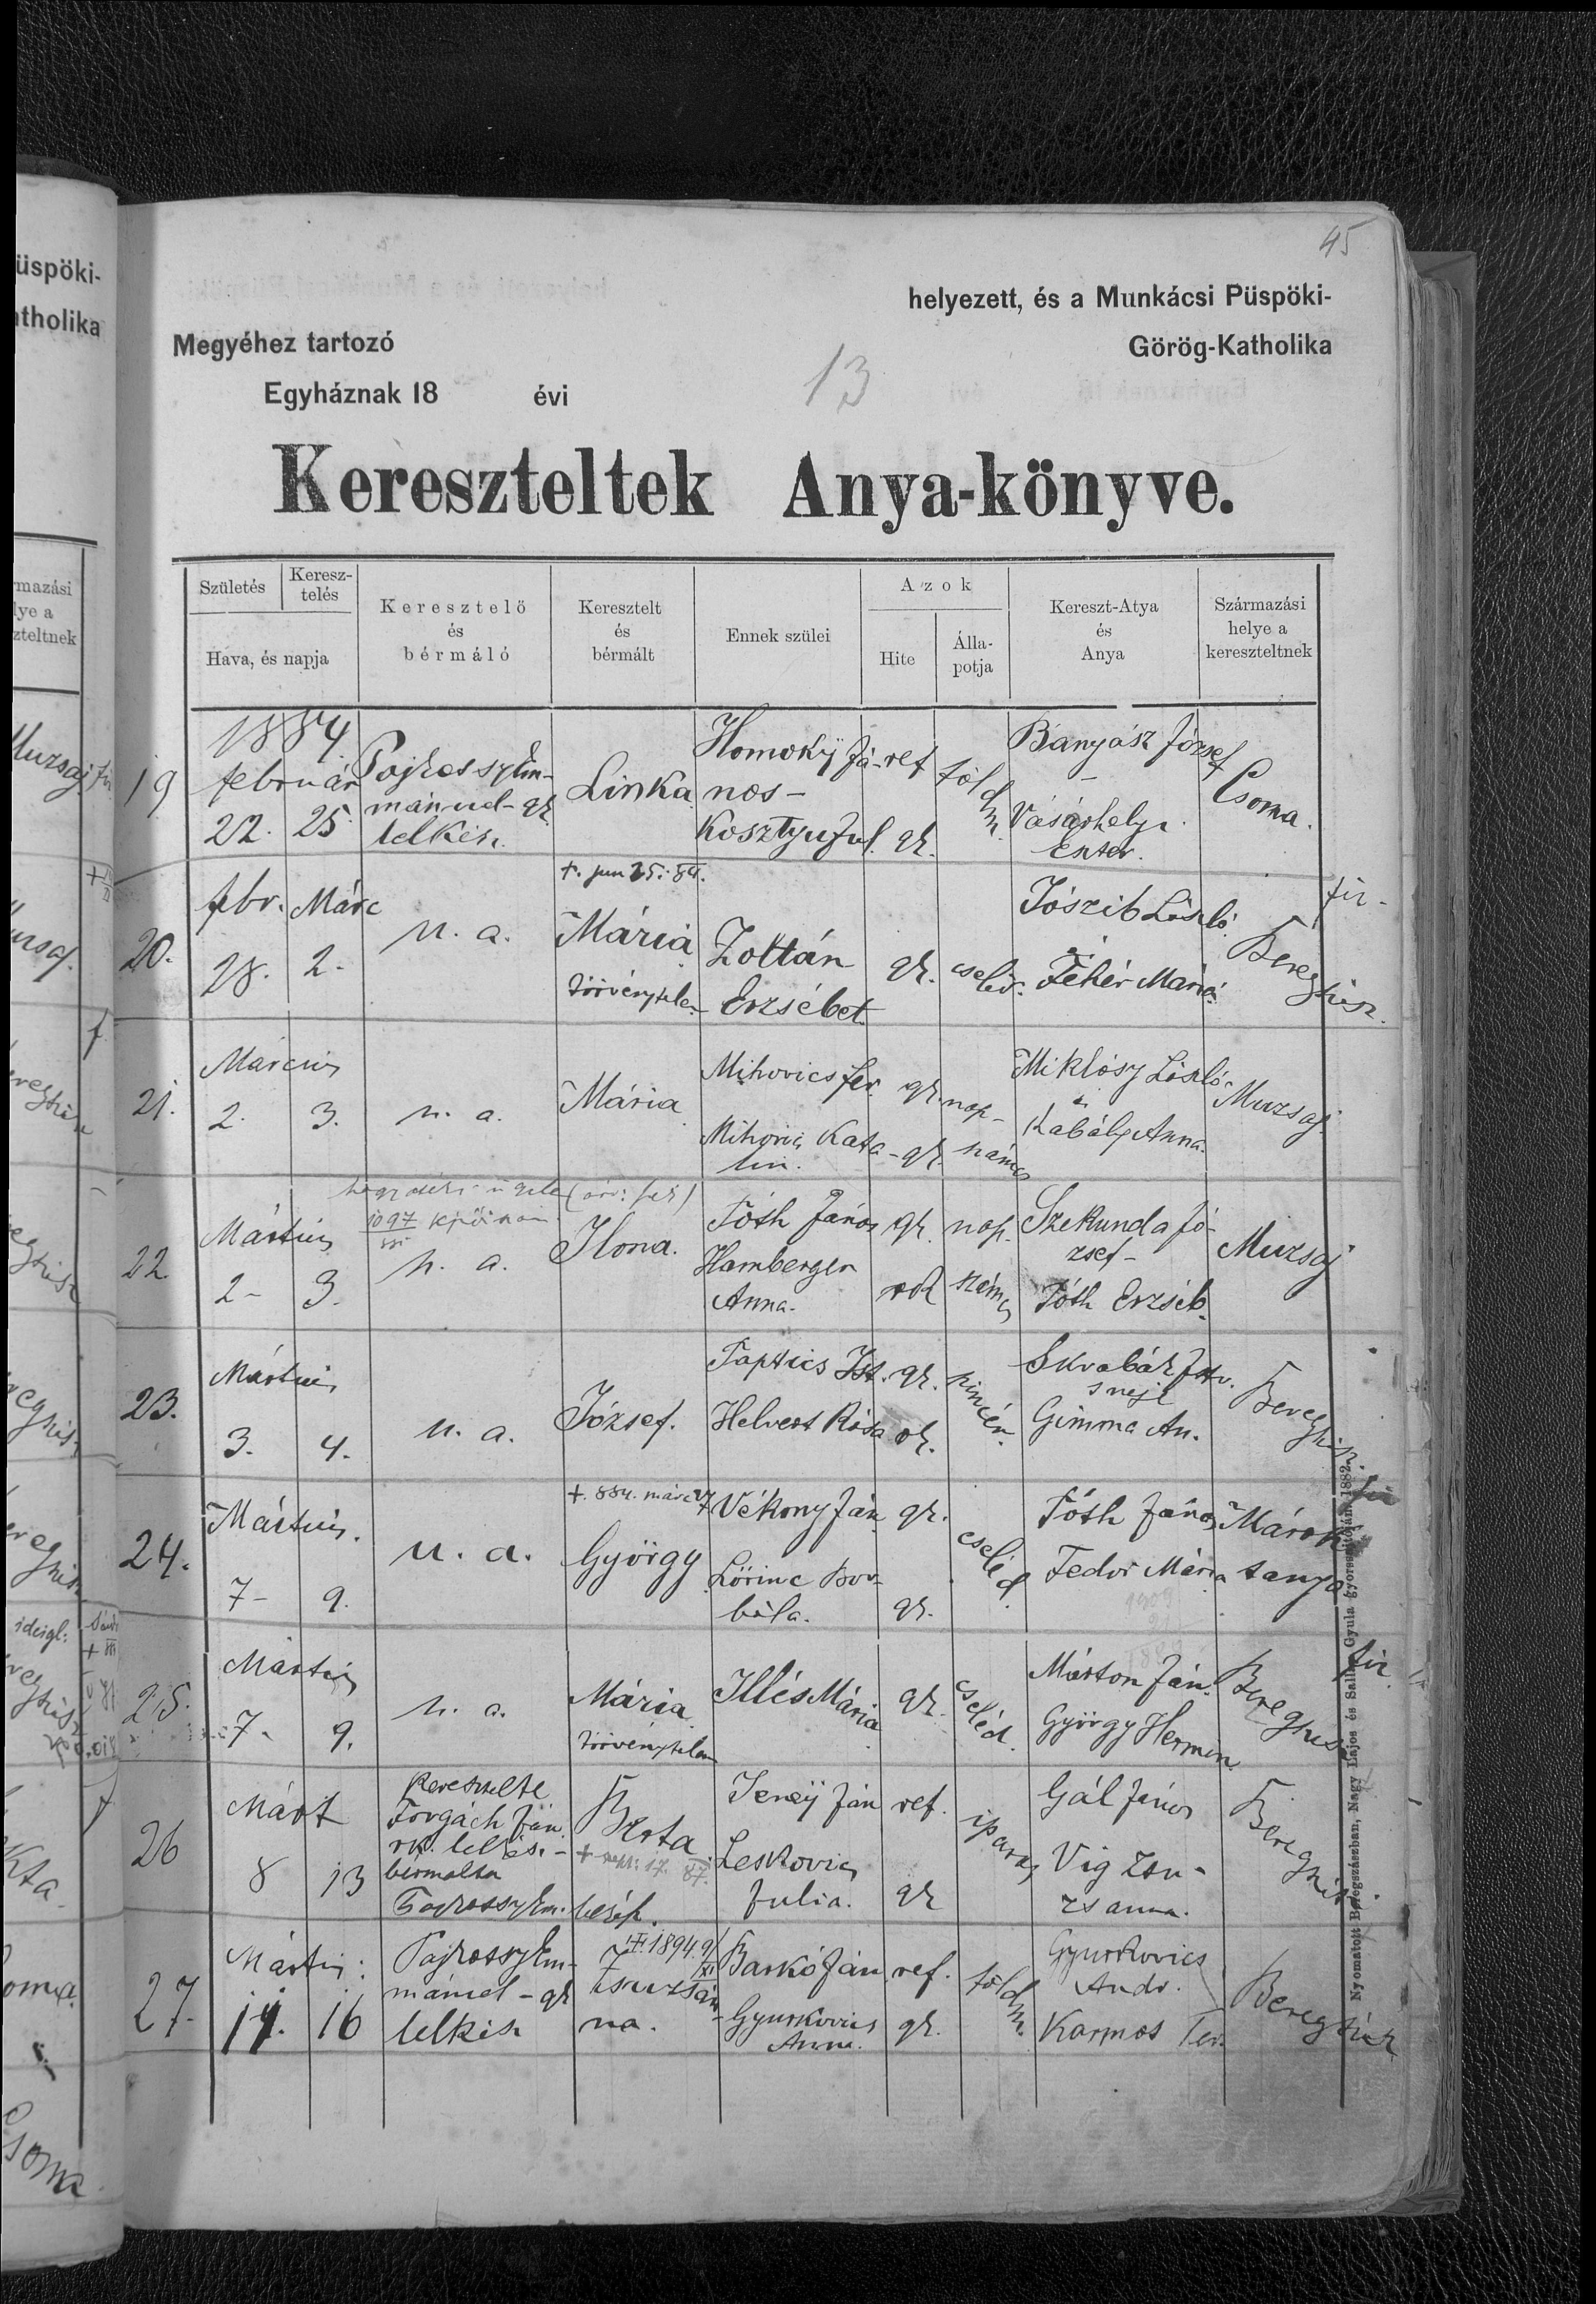 45
helyezett, és a Munkácsi Püspöki-
Megyéhez tartozó Görög-Katholika
Egyháznak 18 évi
13
Kereszteltek Anya-könyve.
Születés
Keresz-
telés
Hava, és napja
Keresztelö
és
bérmáló
Keresztelt
és
bérmált
Ennek szülei
Azok
Hite
Álla-
potja
Kereszt-Atya
és
Anya
Származási
helye a
kereszteltnek
1884
19
február
22. 25.
lelkész
Linka
Homoky Já-
nos-
Kosztyu Jul.
ref
gk.
földm.
Bányász József
-
Vásárhelyi
Eszter.
Csoma.
20.
febr. Márc
28. 2.
u. a.
Mária
törvénytelen
Zoltán
Erzsébet
gk.
cseléd.
László
Fehér Mária
Beregszász.
21.
Március
2. 3.
u. a.
Mária
Mihovics fer.
Mihovics Kata-
lin.
gk.
gk.
nap-
számos
Miklósy László
Kabály Anna.
Muzsaj.
22.
Mártius
2- 3.
u. a.
Ilona.
Tóth János
Hamberger
Anna.
gk.
rk
nap-
számos
Szekunda Jó-
zsef-
Tóth Erzséb.
Muzsaj
23.
Mártius
3. 4.
u. a.
József.
Taptics Ist.
Helvert Rósa
gk.
rk.
Skrabák Istv.
s neje
Gimma An.
Beregszász.
24.
Mártius.
7- 9.
u. a.
+. 884. márc 27
György
Vékony Ján
Lörinc Bor-
bála.
gk.
gk.
cseléd
Tóth János
Fedor Mária
Márok
tanya
25.
Mártius
7- 9.
u. a.
Mária
törvénytelen
Illés Mária
gk.
cseléd.
Márton Ján.
György Hermin
Beregszász
26
Márt
8 13
Keresztelte
Forgách Ján.
rk. lelkész-
bérmálta
Berta
Jeney Ján
Leskovics
Julia.
ref.
gk
iparos
Gál János
Vig Zsu-
zsanna.
Beregszász
27.
Mártius:
14. 16
mánuel - gk
lelkész
Zsuzsán-
na.
Barkó Ján
Gyurkovics
Anna.
ref.
gk.
földm.
Gyurkovics
Andr.
Karmos Ter.
Beregszász
Nyomatott Beregszászban, Nagy Lajos és Sallay Gyula gyorssajtóján 1882.
üspöki-
atholika
rmazási
lye a
zteltnek